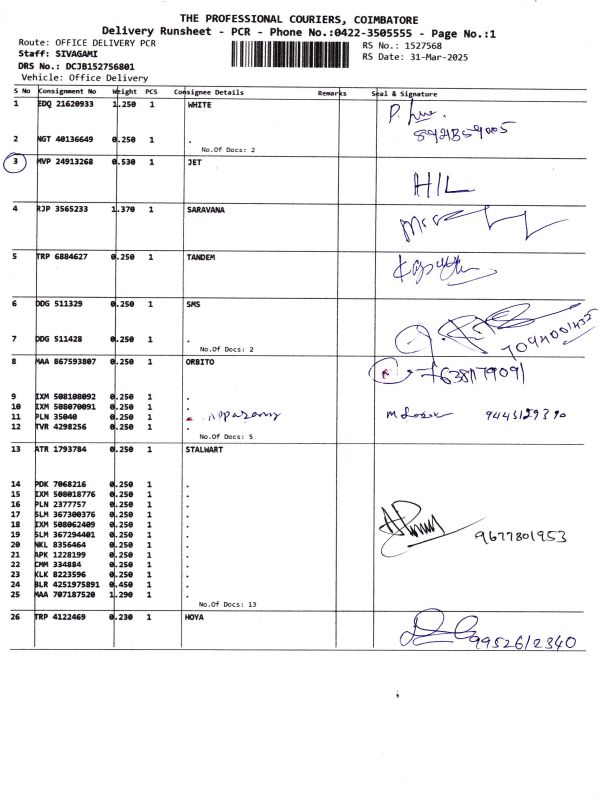 THE PROFESSIONAL COURIERS, COIMBATORE
Delivery Runsheet - PCR - Phone No.:0422-3505555 - Page No.:1
Route: OFFICE DELIVERY PCR
RS No.: 1527568
Staff: SIVAGAMI
RS Date: 31-Mar-2025
DRS No.: DCJB152756801
Vehicle: Office Delivery
S No Consignment No Weight PCS Consignee Details Remarks Seal & Signature
1 EDQ 21620933 1.250 1 WHITE
2 NGT 40136649 0.250 1 .
No.Of Docs: 2
3 MVP 24913268 0.530 1 JET
H/L
4 RJP 3565233 1.370 1 SARAVANA
5 TRP 6884627 0.250 1 TANDEM
6 DDG 511329 0.250 1 SMS
7 DDG 511428 0.250 1 .
No.Of Docs: 2
8 MAA 867593807 0.250 1 ORBITO
9 IXM 508108092 0.250 1 .
10 IXM 508070091 0.250 1 .
11 PLN 35040 0.250 1 .
12 TVR 4298256 0.250 1 .
No.Of Docs: 5
13 ATR 1793784 0.250 1 STALWART
14 PDK 7068216 0.250 1 .
15 IXM 508018776 0.250 1 .
16 PLN 2377757 0.250 1 .
17 SLM 367300376 0.250 1 .
18 IXM 508062409 0.250 1 .
19 SLM 367294401 0.250 1 .
20 NKL 8356464 0.250 1 .
9677801953
21 APK 1228199 0.250 1 .
22 CMM 334884 0.250 1 .
23 KLK 8223596 0.250 1 .
24 BLR 4251975891 0.450 1 .
25 MAA 707187520 1.290 1 .
No.Of Docs: 13
26 TRP 4122469 0.230 1 HOYA
9952612340